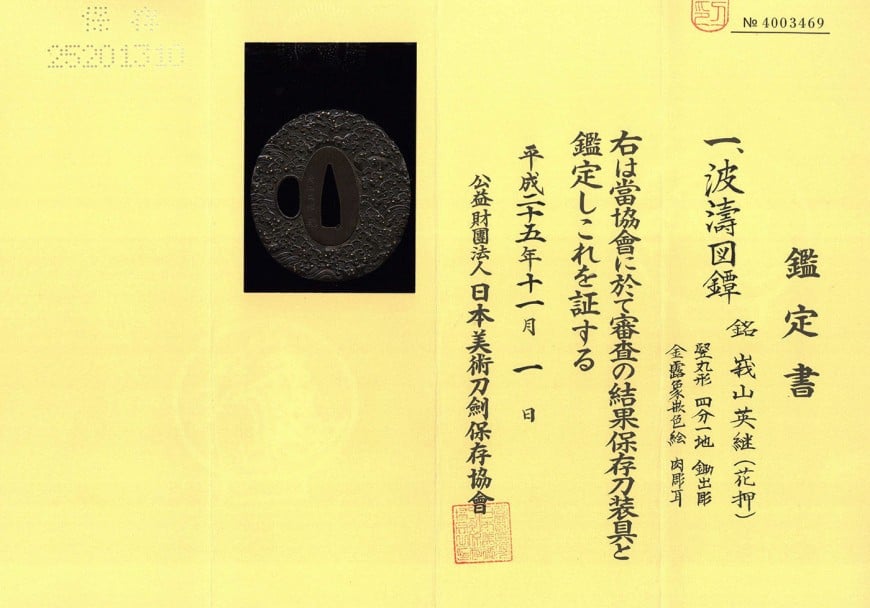 № 4003469
鑑定書
一、波濤図鐔
銘 峩山英継(花押)
竪丸形 四分一地 鋤出彫
金露象嵌色絵 肉彫耳
右は當協會に於て審査の結果保存刀装具と
鑑定しこれを証する
平成二十五年十一月 一 日
公益財團法人 日本美術刀劍保存協會
保存
25201310